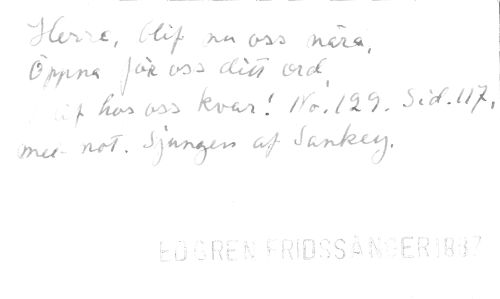 Herre, blif nu oss nära,
Öppna för oss ditt ord,
blif hos oss kvar! No. 129. Sid. 117,
med not. Sjungen af Sankey.
EDGREN FRIDSSÅNGER 1887